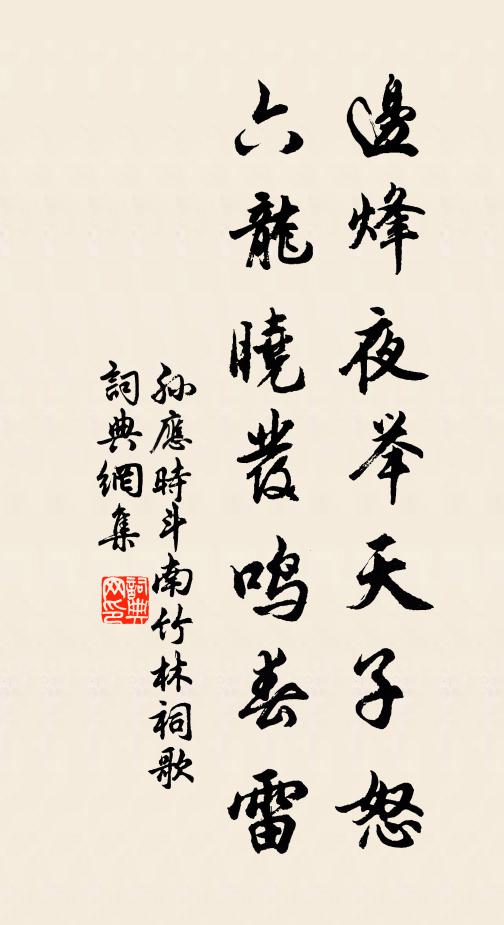 邊烽夜举天子怒
六龍曉發鳴春雷
孫應時斗南竹林祠歌
詞典網集
詞典網印